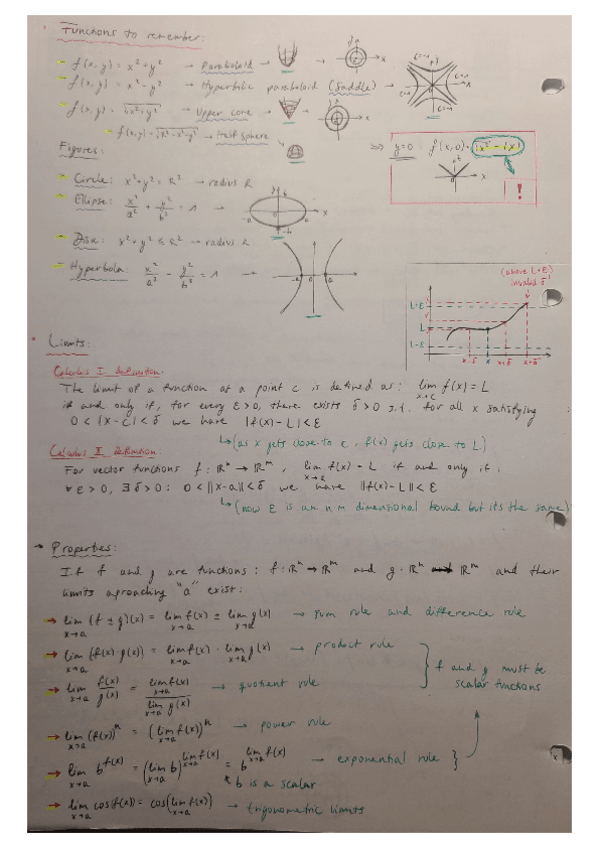 Functions to remember:
f(x,y) = x²+y² → Paraboloid →
f(x,y) = x²-y² → Hyperbolic paraboloid (Saddle) →
f(x,y) = √(x²+y²) → Upper cone →
→ Half sphere
⇒ y=0 f(x,0) = √x² = |x|
!
Figures:
Circle: x²+y² = R² → radius R
Ellipse: x²/a² + y²/b² = 1 →
Disk: x²+y² ≤ R² → radius R
Hyperbola: x²/a² - y²/b² = 1 →
(above L+ε)
invalid δ
L+ε
L
L-ε
Limits:
Calculus I Definition:
The limit of a function at a point c is defined as: lim x→c f(x) = L
if and only if, for every ε>0, there exists δ>0 s.t. for all x satisfying
0<|x-c|<δ we have |f(x)-L|<ε
↳(as x gets close to c, f(x) gets close to L)
Calculus II Definition:
For vector functions f: ℝⁿ → ℝᵐ, lim x→a f(x) = L if and only if:
∀ε>0, ∃δ>0: 0<||x-a||<δ we have ||f(x)-L||<ε
↳(now ε is an m dimensional bound but its the same)
→ Properties:
If f and g are functions: f: ℝⁿ → ℝᵐ and g: ℝⁿ → ℝᵐ and their
limits aproaching "a" exist:
→ lim x→a (f ± g)(x) = lim x→a f(x) ± lim x→a g(x) → sum rule and difference rule
→ lim x→a (f(x)·g(x)) = lim x→a f(x) · lim x→a g(x) → product rule
f and g must be
scalar functions
→ lim x→a f(x)/g(x) = lim x→a f(x) / lim x→a g(x) → quotient rule
→ lim x→a (f(x))ⁿ = (lim x→a f(x))ⁿ → power rule
→ lim x→a b^f(x) = (lim x→a b)^(lim x→a f(x)) = b^(lim x→a f(x)) → exponential rule
b is a scalar
→ lim x→a cos(f(x)) = cos(lim x→a f(x)) → trigonometric limits